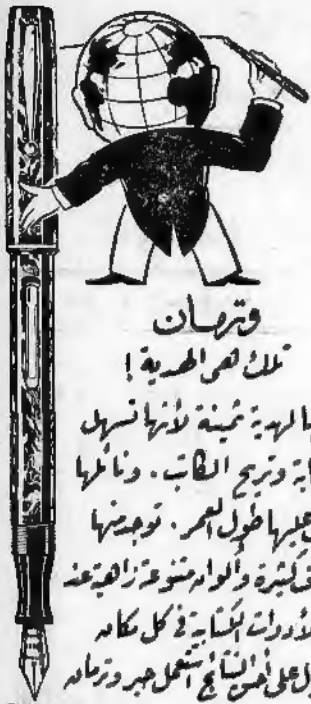 وترمان
تلك هى الهدية !
يالها هدية ثمينة لأنها تسهل
وتريح الكاتب . و
عليها طول العمر . توجد منها
كثيرة وألوان متنوعة زاهية عند
لأدوات الكتابة فى كل مكان
على أحسن النتائج استعمل حبر وترمان